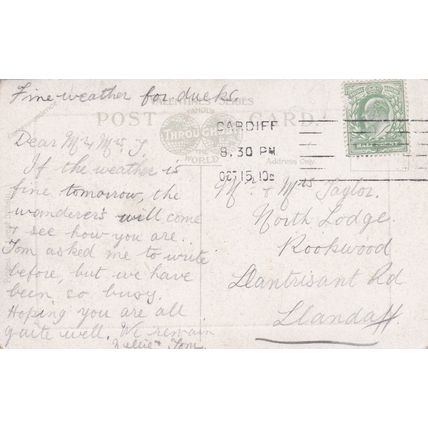 Fine weather for ducks.
VALENTINES SERIES
FAMOUS
THROUGHOUT
THE
WORLD
POST CARD
Address Only
CARDIFF
8.30 PM
OCT 15
Dear Mr & Mrs T
If the weather is
fine tomorrow, the
wanderers will come
& see how you are.
Tom asked me to write
before, but we have
been so busy.
Hoping you are all
quite well. We remain
Nellie & Tom.
Mr & Mrs Taylor.
North Lodge.
Rookwood
Llantrisant Rd
Llandaff.